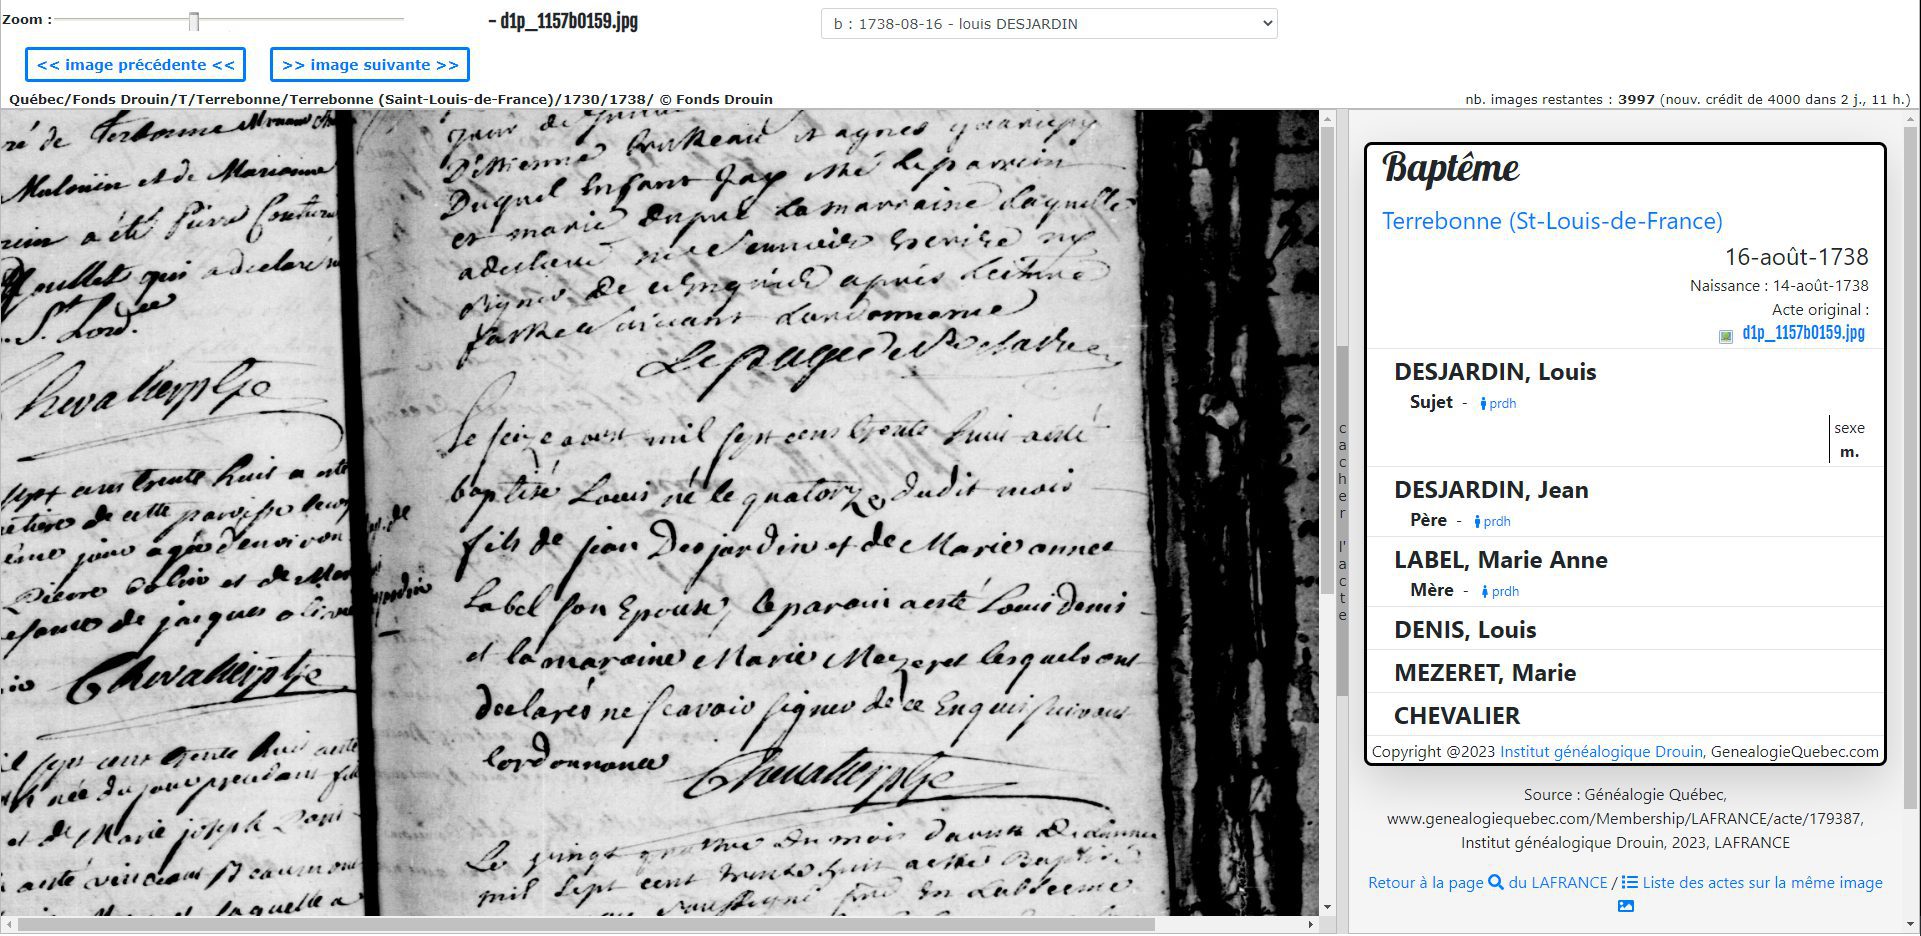 Zoom :
- d1p_1157b0159.jpg
b : 1738-08-16 - louis DESJARDIN
<< image précédente <<
>> image suivante >>
Québec/Fonds Drouin/T/Terrebonne/Terrebonne (Saint-Louis-de-France)/1730/1738/ © Fonds Drouin
nb. images restantes : 3997 (nouv. crédit de 4000 dans 2 j., 11 h.)
ré de Terbonne
Malouin et de Marianne
a été Pierre
qui a declaré
St Lord
Chevalier ptre
sept cens trente huit a esté
de cette paroisse
jour agée d'environ
Pierre et de
de jacques
Chevalier ptre
sept cens trente huit a esté
née du jour precedant
et de Marie joseph
a esté
laquelle a
D'Estienne et agnes
Duquel Enfant Jay esté le parrein
et marie la marraine laquelle
a declaré
signer de ce Enquis après lecture
faitte suivant Lordonnance
Le page de
Le seize aoust mil sept cens trente huit a esté
baptisé Louis né le quatorze dudit mois
fils de jean Desjardin et de Marie annee
Label son Epouse, le parain a esté Louis denis
et la maraine Marie Mezeret lesquels ont
declarés ne scavoir signer de ce Enquis suivant
lordonnance
Chevalier ptre
Le vingt quatre du mois daoust de Lannee
mil sept cent trente huit a esté Baptisé
cacher l'acte
Baptême
Terrebonne (St-Louis-de-France)
16-août-1738
Naissance : 14-août-1738
Acte original :
d1p_1157b0159.jpg
DESJARDIN, Louis
Sujet - prdh
sexe
m.
DESJARDIN, Jean
Père - prdh
LABEL, Marie Anne
Mère - prdh
DENIS, Louis
MEZERET, Marie
CHEVALIER
Copyright @2023 Institut généalogique Drouin, GenealogieQuebec.com
Source : Généalogie Québec,
www.genealogiequebec.com/Membership/LAFRANCE/acte/179387,
Institut généalogique Drouin, 2023, LAFRANCE
Retour à la page du LAFRANCE / Liste des actes sur la même image